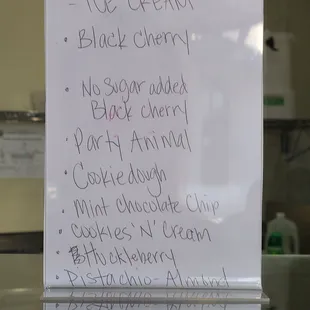 - ICE CREAM
• Black Cherry
• No Sugar added
Black cherry
• Party Animal
• Cookie dough
• Mint Chocolate Chip
• Cookies 'N' Cream
• Huckleberry
• Pistachio-Almond